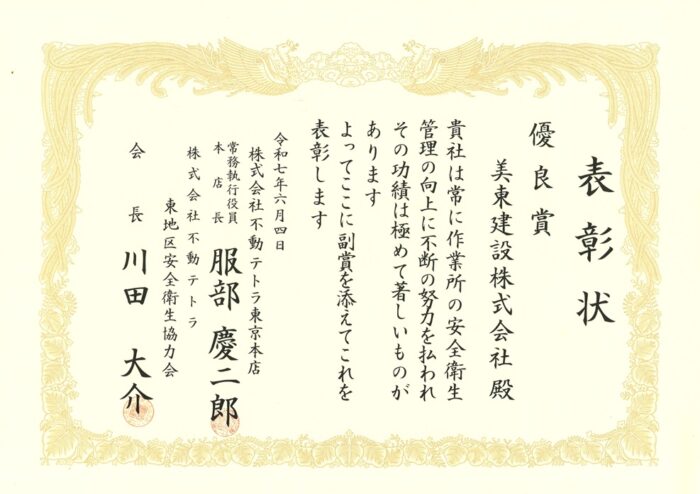 表彰状
優良賞
美東建設株式会社 殿
貴社は常に作業所の安全衛生
管理の向上に不断の努力を払われ
その功績は極めて著しいものが
あります
よってここに副賞を添えてこれを
表彰します
令和七年六月四日
株式会社不動テトラ東京本店
常務執行役員
本店長
服部 慶二郎
株式会社不動テトラ
東地区安全衛生協力会
会長 川田 大介